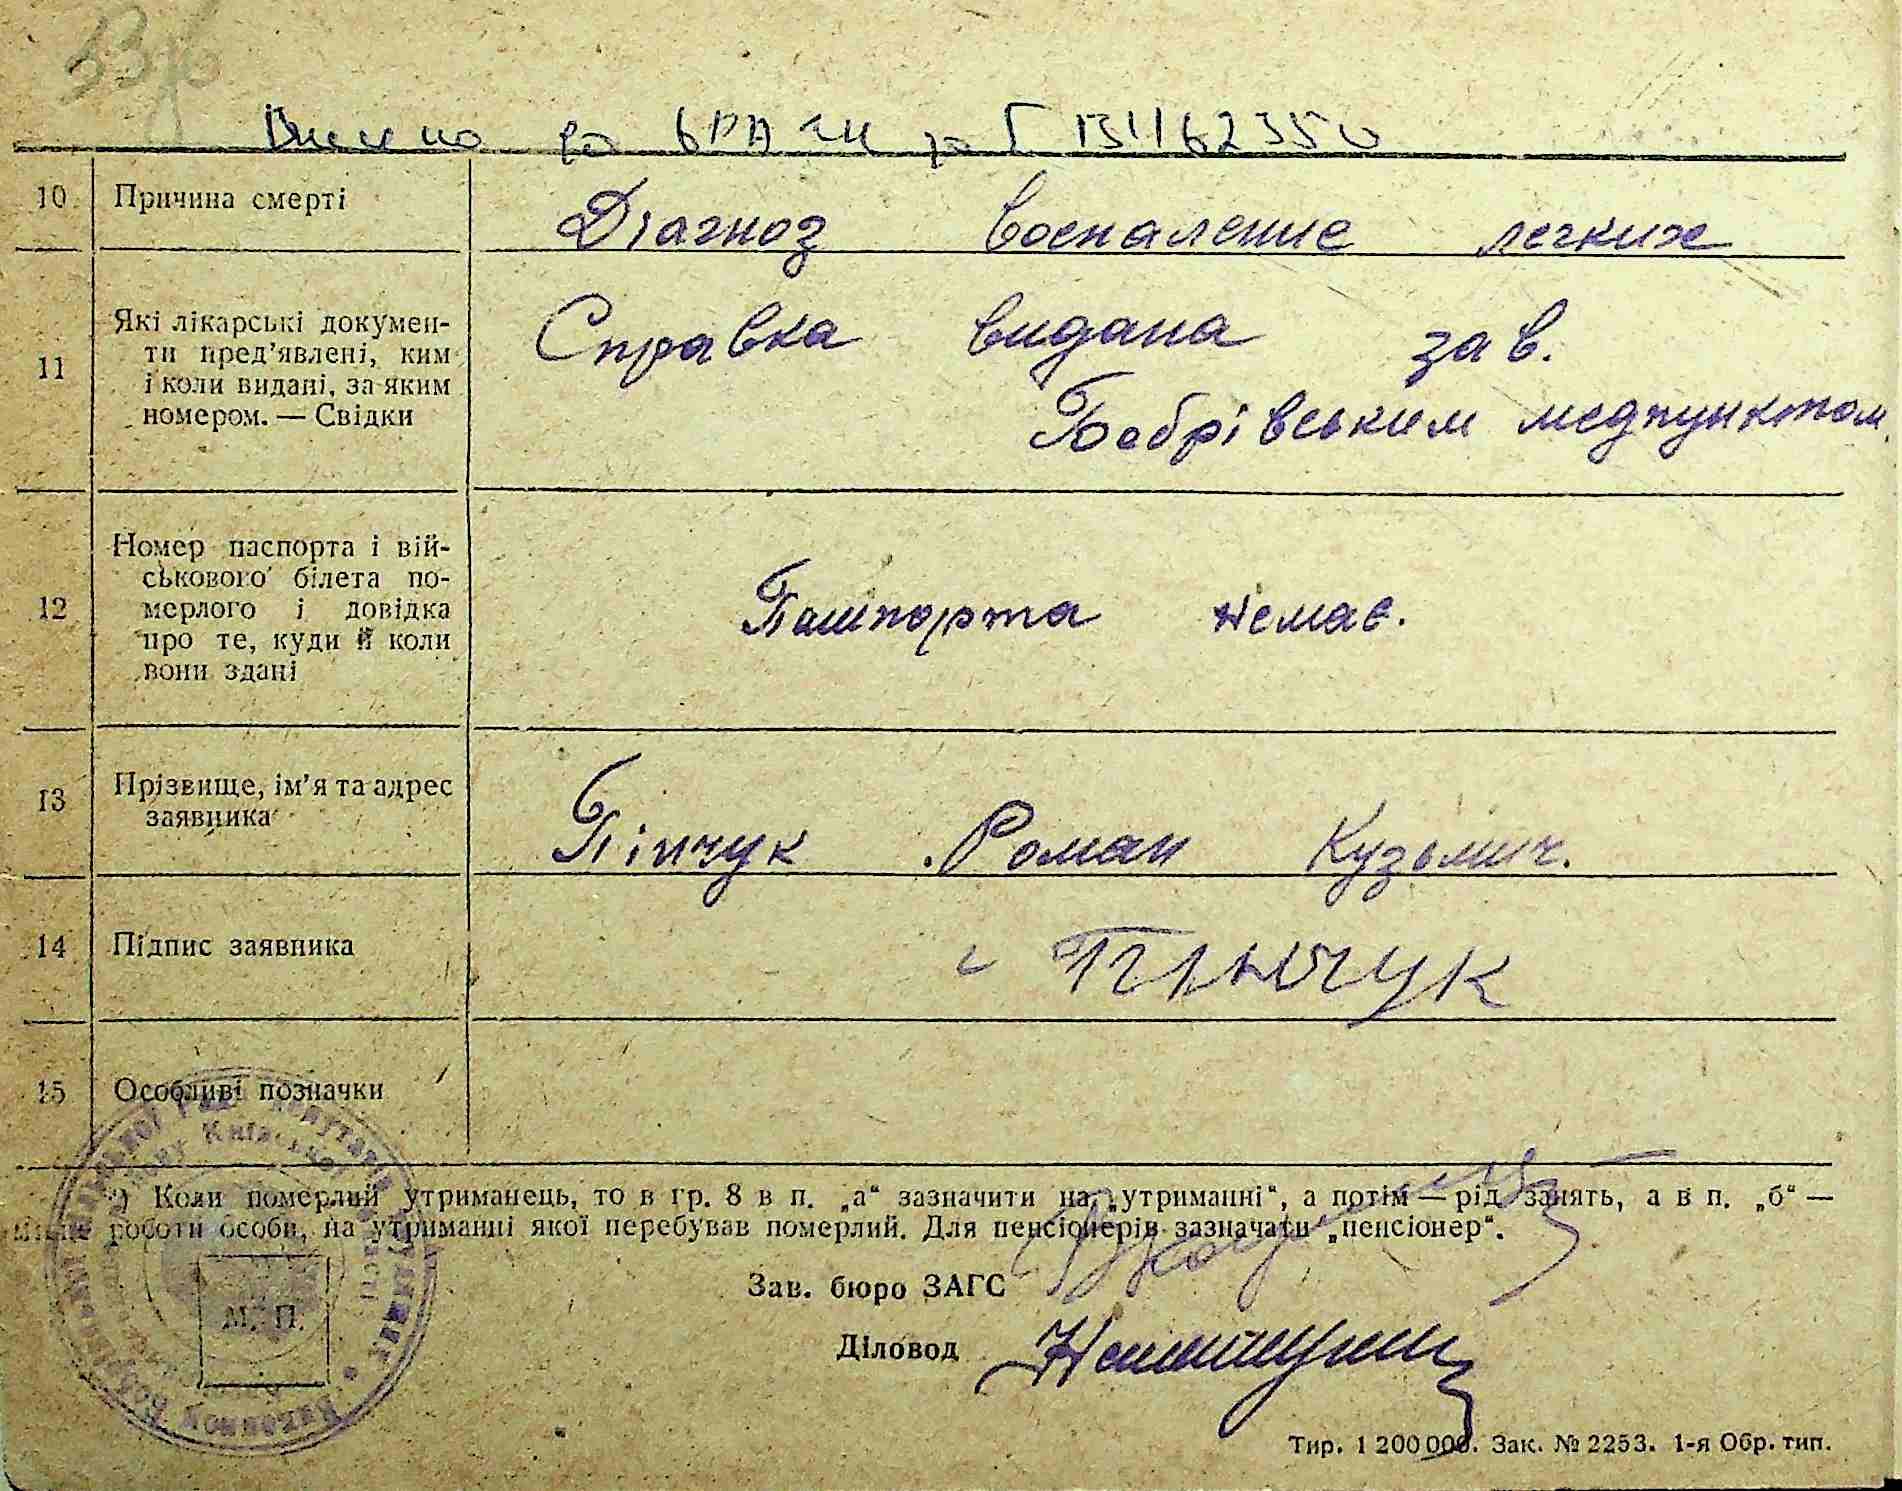 33
Внесено до
10 Причина смерті Діагноз воспаление легких
11 Які лікарські докумен-
ти пред'явлені, ким
і коли видані, за яким
номером. — Свідки
Справка видана зав.
Бобрівським медпунктом.
12 Номер паспорта і вій-
ськового білета по-
мерлого і довідка
про те, куди й коли
вони здані
Пашпорта немає.
13 Прізвище, ім'я та адрес
заявника
Пінчук Роман Кузьмич.
14 Підпис заявника Пінчук
15 Особливі позначки
*) Коли померлий утриманець, то в гр. 8 в п. „а“ зазначити на „утриманні“, а потім — рід занять, а в п. „б“ —
місце роботи особи, на утриманні якої перебував померлий. Для пенсіонерів зазначати „пенсіонер“.
Зав. бюро ЗАГС
М. П.
Діловод
Тир. 1 200 000. Зак. № 2253. 1-я Обр. тип.